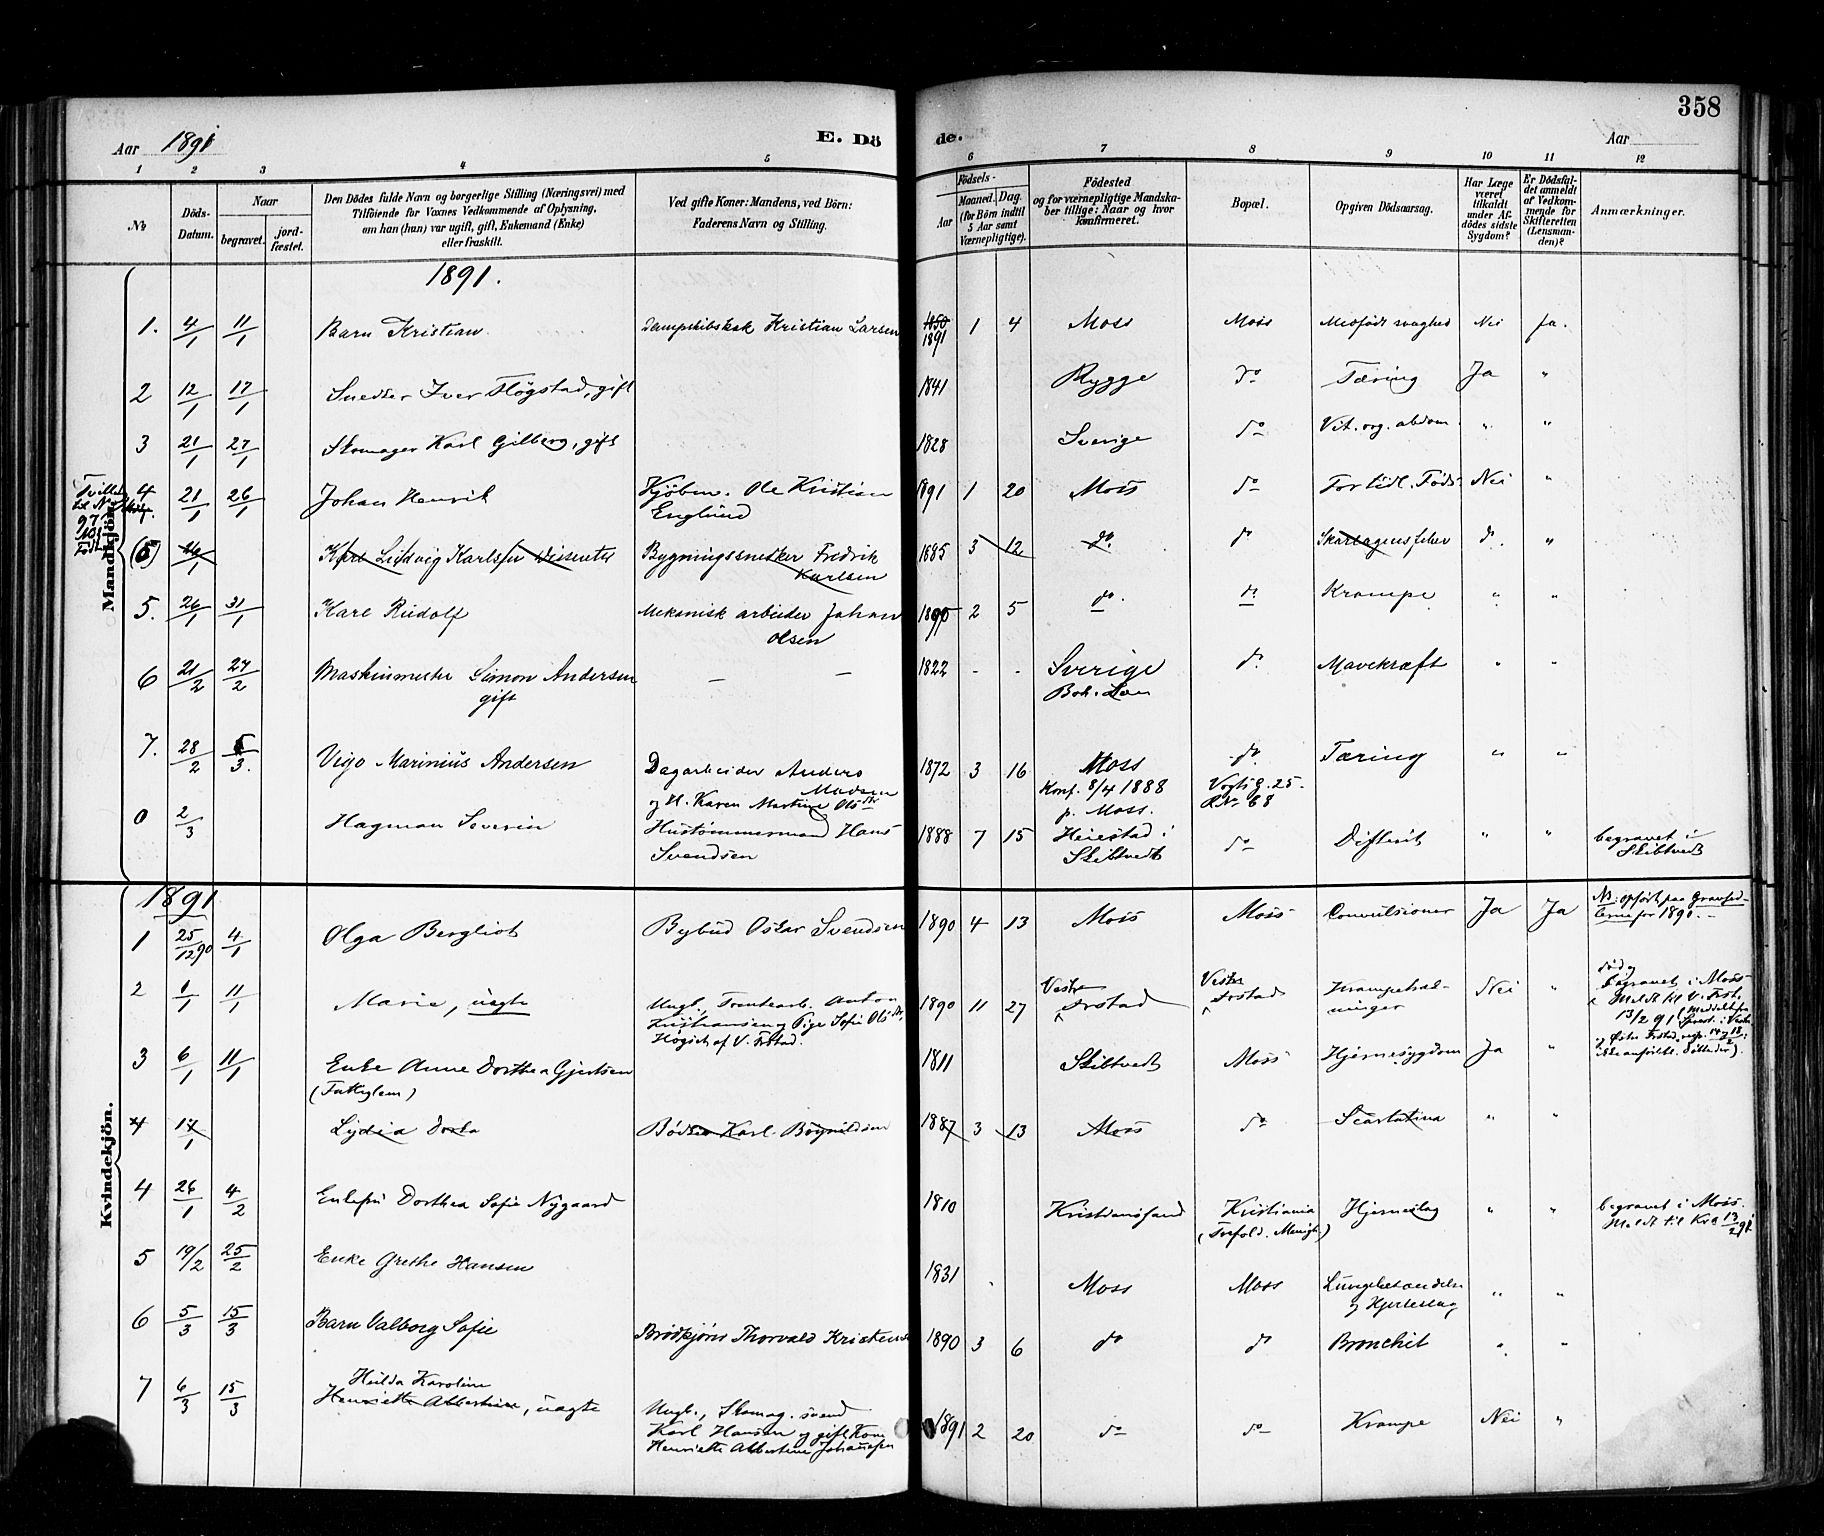 358
Aar 1891
E. Dö
de.
Aar
1 2 3 4 5 6 7 8 9 10 11 12
No
Döds-Datum.
Naar
begravet.
jord-fæstet.
Den Dödes fulde Navn og borgerlige Stilling (Næringsvei) med
Tilföiende for Voxnes Vedkommende af Oplysning,
om han (hun) var ugift, gift, Enkemand (Enke)
eller fraskilt.
Ved gifte Koner: Mandens, ved Börn:
Faderens Navn og Stilling.
Födsels-
Aar
Maaned. Dag.
(for Börn indtil
5 Aar samt
Værnepligtige).
Födested
og for værnepligtige Mandska-
ber tillige: Naar og hvor
konfirmeret.
Bopæl.
Opgiven Dödsaarsag.
Har Læge
været
tilkaldt
under Af-
dödes sidste
Sygdom?
Er Dödsfal-
det anmeldt
af Vedkom-
mende for
Skifteretten
(Lensman-
den)?
Anmærkninger.
Mandkjön.
1891.
1. 4/1 11/1 Barn Kristian Dampskibskok Kristian Larsen 1850 1891 1 4 Moss Moss Medfødt svaghed Nei Ja.
2 12/1 17/1 Snedker Iver Høgstad, gift 1841 Rygge do Tæring Ja "
3 21/1 27/1 Skomager Karl Gilberg, gift 1828 Sverige do Vit. org. abdom. " "
4 21/1 26/1 Johan Henrik Kjøbm. Ole Kristian
Englund 1891 1 20 Moss do For tidl. Føds. Nei "
(5) Karl Ludvig Karlsen Bygningssnedker Fredrik
Karlsen 1885 3 12 do do Skarlagensfeber d. "
5. 26/1 31/1 Karl Rudolf Mekanisk arbeider Johan
Olsen 1890 2 5 do. do Krampe " "
6 21/2 27/2 Maskinmester Simon Andersen
gift — — 1822 - - Sverige
Boh. Len do. Mavekræft " "
7. 28/2 /3. Vigo Marinius Andersen Dagarbeider Anders
Madsen
og H. Karen Martine Olsdtr 1872 3 16 Moss
Konf. 8/4 1888
p. Moss. do
Vogts g. 25.
Tæring " "
0 2/3 Hagman Severin Hustømmermand Hans
Svendsen 1888 7 15 Heiestad i
Skibtvedt do Difterit " " begravet i
Skibtvedt
Kvindekjön.
1891
1 25/12 90 4/1 Olga Bergliot Bybud Oskar Svendsen 1890 4 13 Moss Moss Convulsioner Ja Ja NB. opført paa Gravsed-
lerne for 1890.
2 1/1 11/1 Marie, uægte Ungk. Anton
Kristiansen og Pige Sofie Olsdtr.
af V. Frstad. 1890 11 27 Vestre
Frstad Vestre
Frstad Krampetræk-
ninger Nei " død og
begravet i Moss
Meldt til V. Frst.
13/2 91
3 6/1 11/1 Enke Anne Dorthea Gjertsen
(Fattiglem) 1811 Skibtvedt Moss Hjernesygdom Ja "
4 14/1 Lydia Dorla Bødker Karl Bøynildsen 1887 3 13 Moss do Scarlatina " "
4 26/1 4/2 Enkefru Dorthea Sofie Nygaard 1810 Kristiansand Kristiania
(Trefold. Menigh.) Hjerneslag " " begravet i Moss.
Meldt til Kra 13/2 91
5 19/2 25/2 Enke Grethe Hansen 1831 Moss Moss Lungebetændelse
og Hjerteslag " "
6 5/3 15/3 Barn Valborg Sofie Brødkjører Thorvald Kristensen 1890 3 6 do do Bronchit " "
7 6/3 15/3 Hulda Karoline
Henriette Albertine, uægte Ungk., Skomag. svend
Karl Hansen og gift Kone
Henriette Albertine Johansen 1891 2 20 do do Krampe Nei "